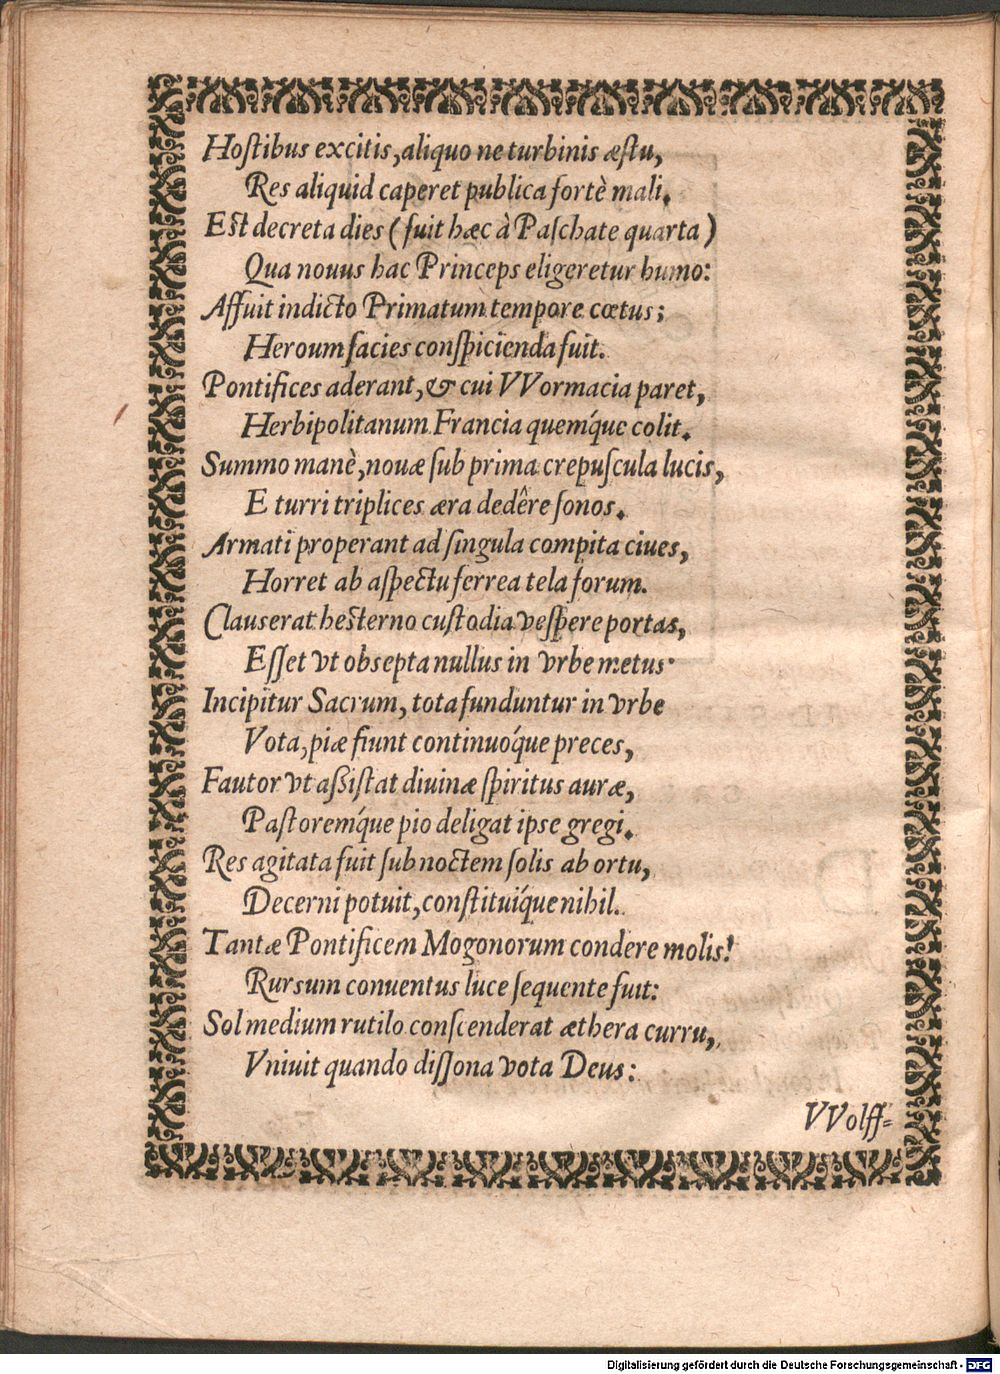 Hoſtibus excitis, aliquo ne turbinis æſtu,
Res aliquid caperet publica fortè mali.
Eſt decreta dies (fuit hæc à Paſchate quarta)
Qua nouus hac Princeps eligeretur humo:
Affuit indicto Primatum tempore cœtus;
Heroum facies conſpicienda fuit.
Pontifices aderant, & cui VVormacia paret,
Herbipolitanum Francia quemq́ue colit.
Summo manè, nouæ ſub prima crepuſcula lucis,
E turri triplices æra dedêre ſonos.
Armati properant ad ſingula compita ciues,
Horret ab aſpectu ferrea tela forum.
Clauserat heſterno cuſtodia veſpere portas,
Eſſet vt obsepta nullus in vrbe metus.
Incipitur Sacrum, tota funduntur in vrbe
Vota, piæ fiunt continuoq́ue preces,
Fautor vt aßiſtat diuinæ ſpiritus auræ,
Paſtoremq́ue pio deligat ipse gregi.
Res agitata fuit ſub noctem ſolis ab ortu,
Decerni potuit, conſtituiq́ue nihil.
Tantæ Pontificem Mogonorum condere molis!
Rursum conuentus luce ſequente fuit:
Sol medium rutilo conſcenderat æthera curru,
Vniuit quando diſſona vota Deus:
VVolff-
Digitalisierung gefördert durch die Deutsche Forschungsgemeinschaft - DFG